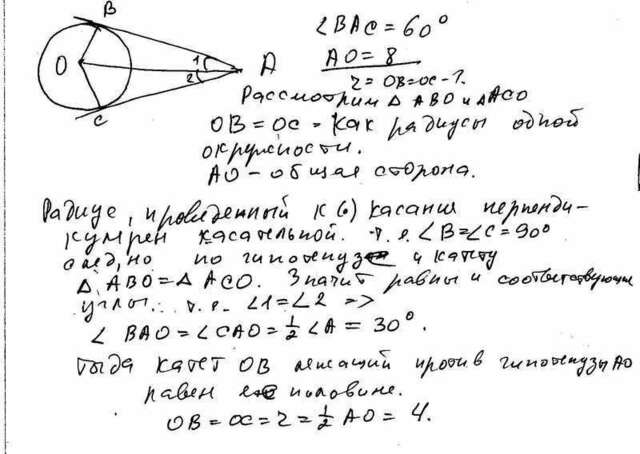 B
O
1
2
A
C
∠BAC = 60°
AO = 8
r = OB = OC - ?
Рассмотрим △ ABO и △ACO
OB = OC - как радиусы одной
окружности.
AO - общая сторона.
Радиус, проведенный к (·) касания перпенди-
кулярен касательной. т.е. ∠B = ∠C = 90°
след,но по гипотенузе и катету
△ ABO = △ ACO. Значит равны и соответствующие
углы. т.е. ∠1 = ∠2 =>
∠ BAO = ∠CAO = ½ ∠A = 30°.
Тогда катет OB лежащий против гипотенузы AO
равен её половине.
OB = OC = r = ½ AO = 4.